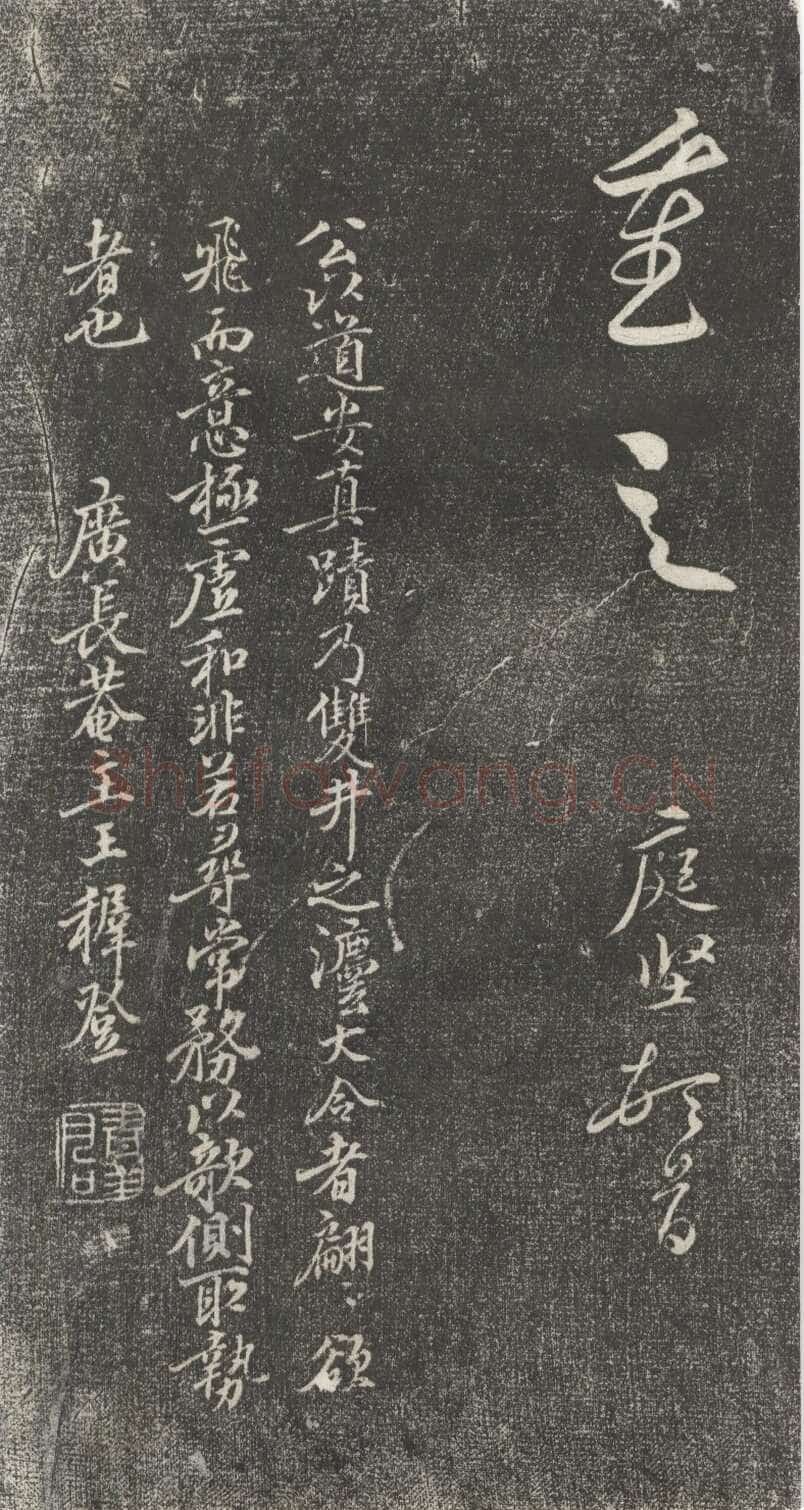 重之 庭坚頓首
公此道安真蹟乃雙井之灋大令者翩〻欲
飛而意極虛和非若尋常務以欹側取勢
者也 廣長菴主王穉登
Shufawang.CN